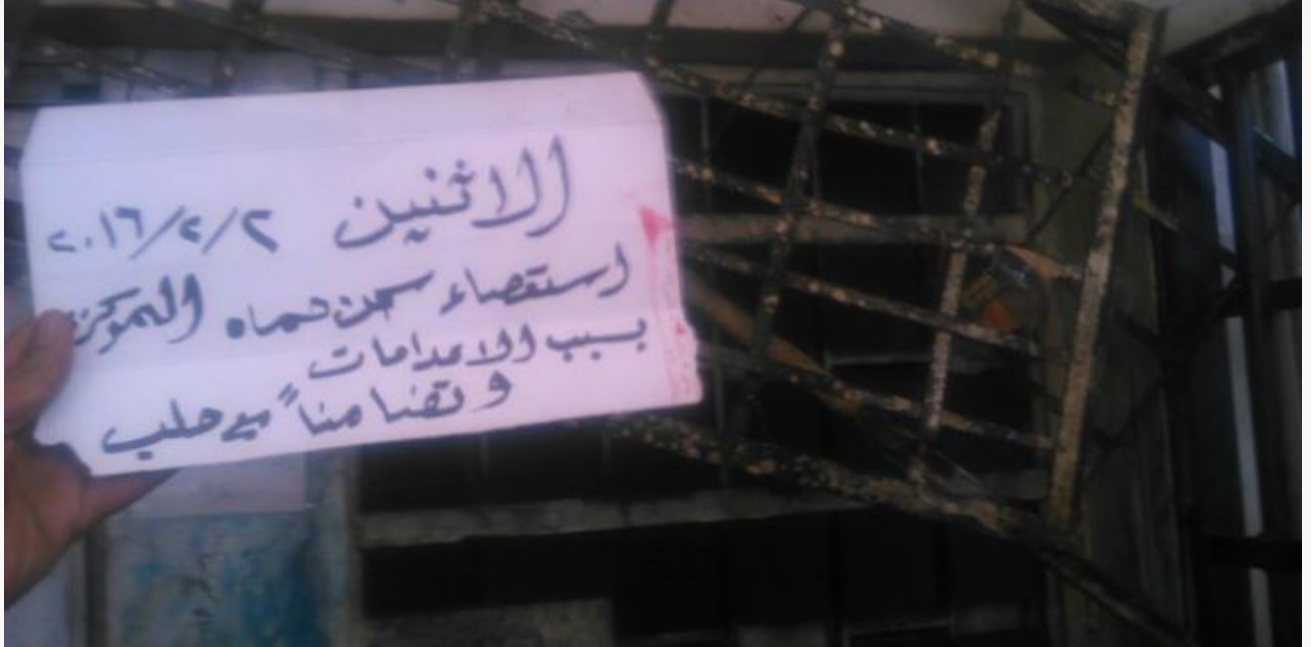 الاثنين ٢/٢/٢٠١٦
استقصاء سجن حماه المركزي
بسبب الاعدامات
و تضامناً مع حلب